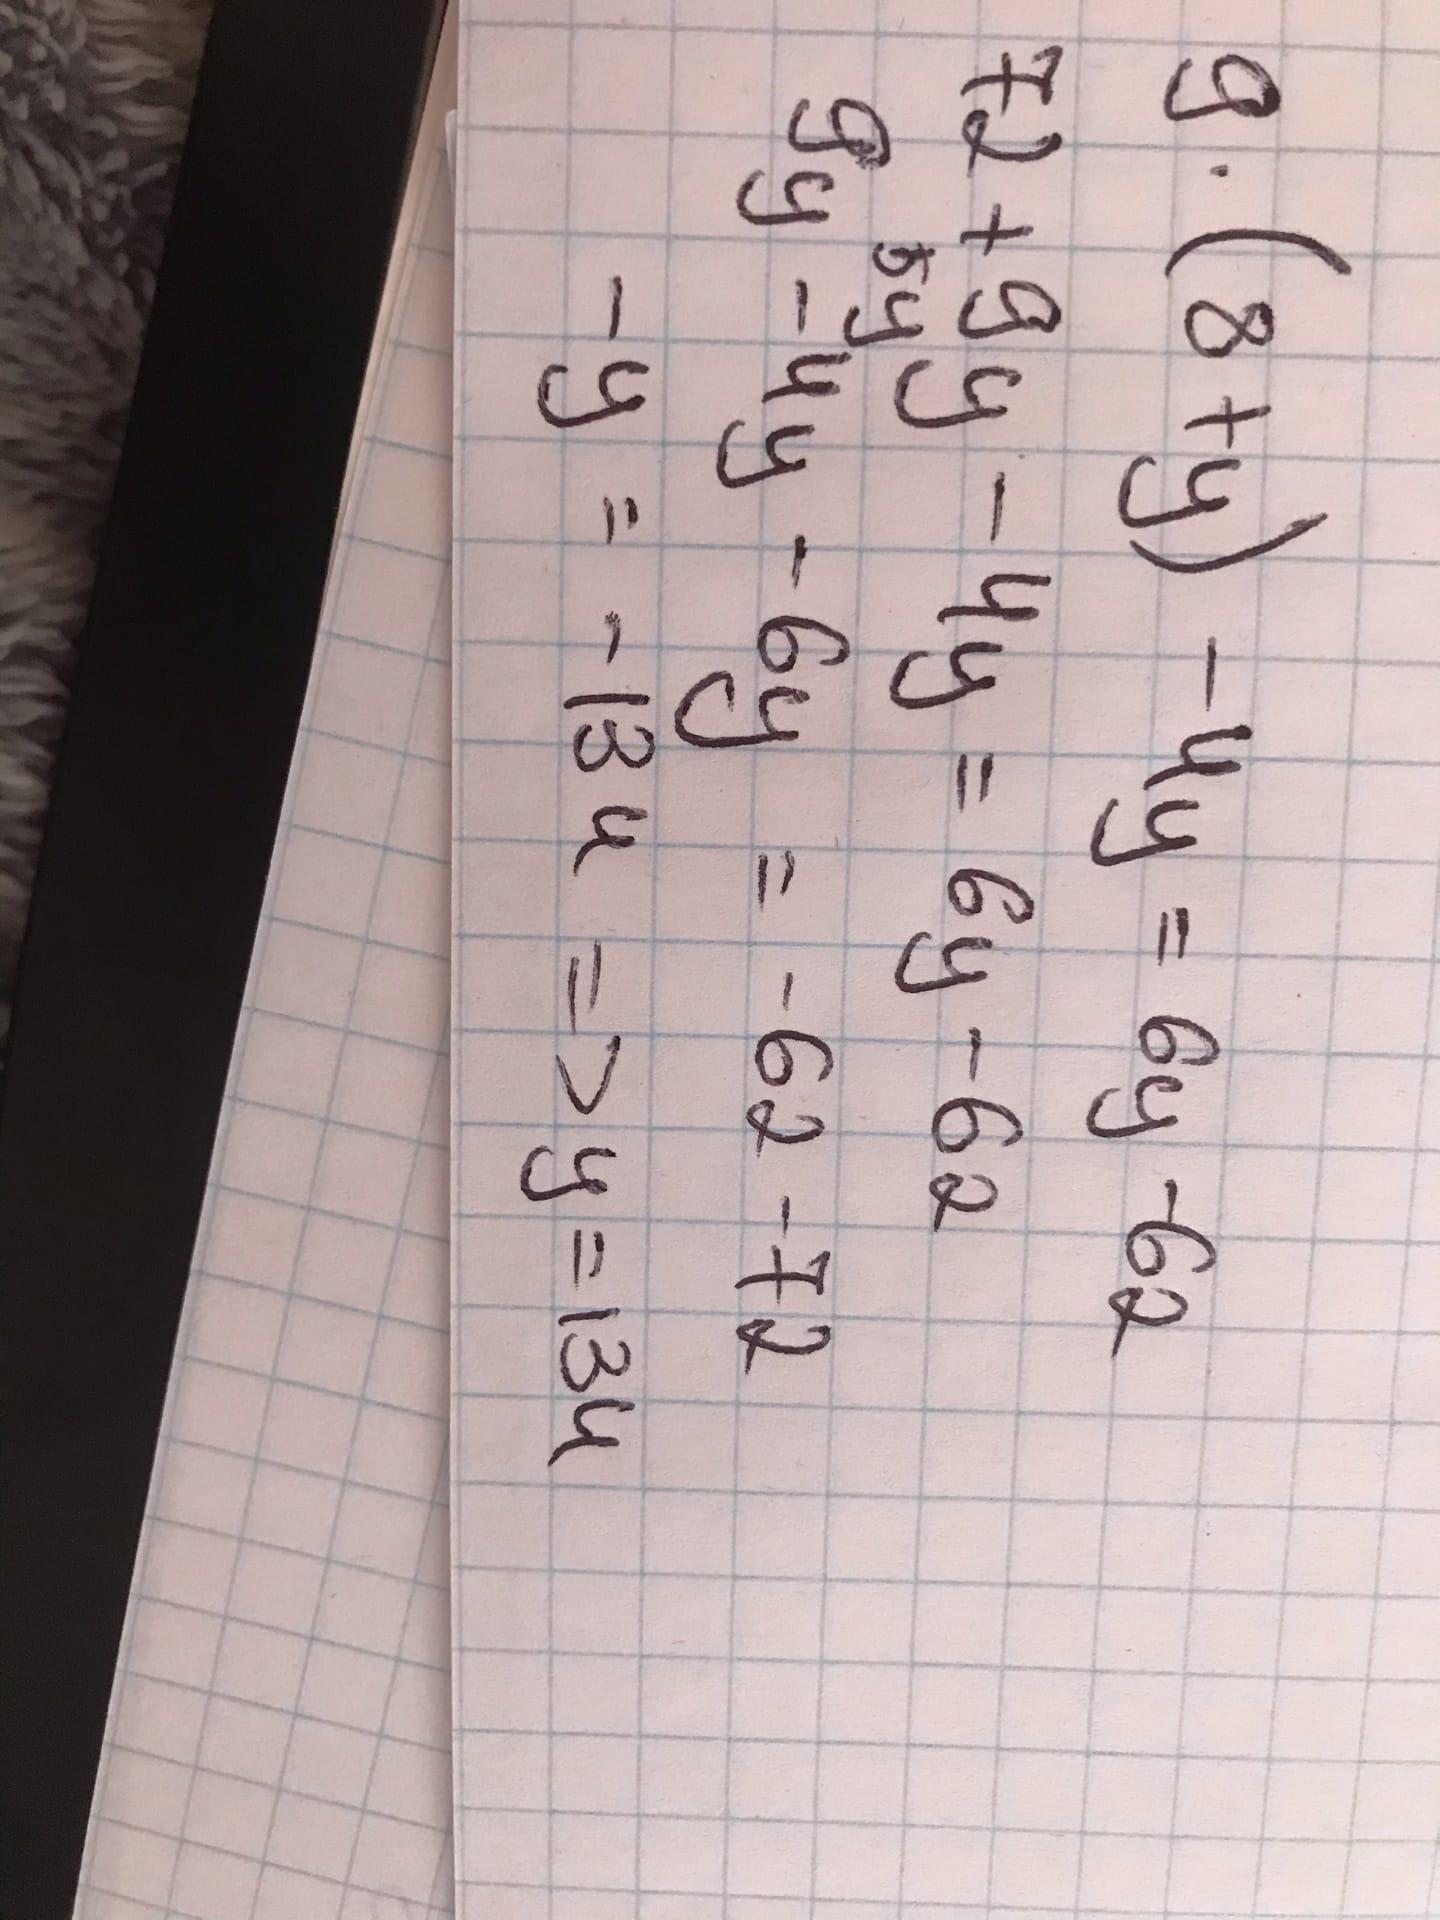 9·(8+y)-4y=6y-62
72+9y-4y=6y-62
5y
9y-4y-6y=-62-72
-y=-134=>y=134